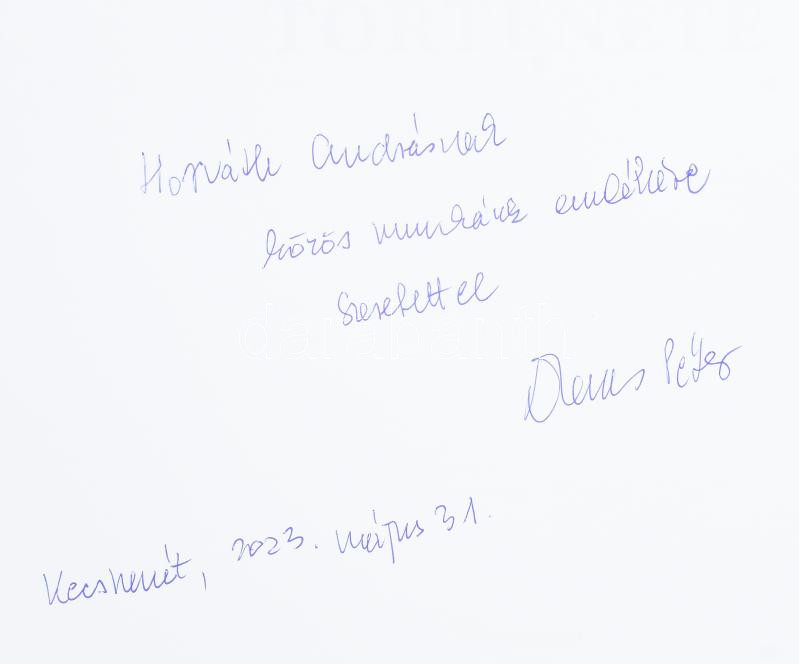 TÖRTÉNETE
Horváth Andrásnak
közös munkánk emlékére
Szeretettel
Péter
Kecskemét, 2023. május 31.